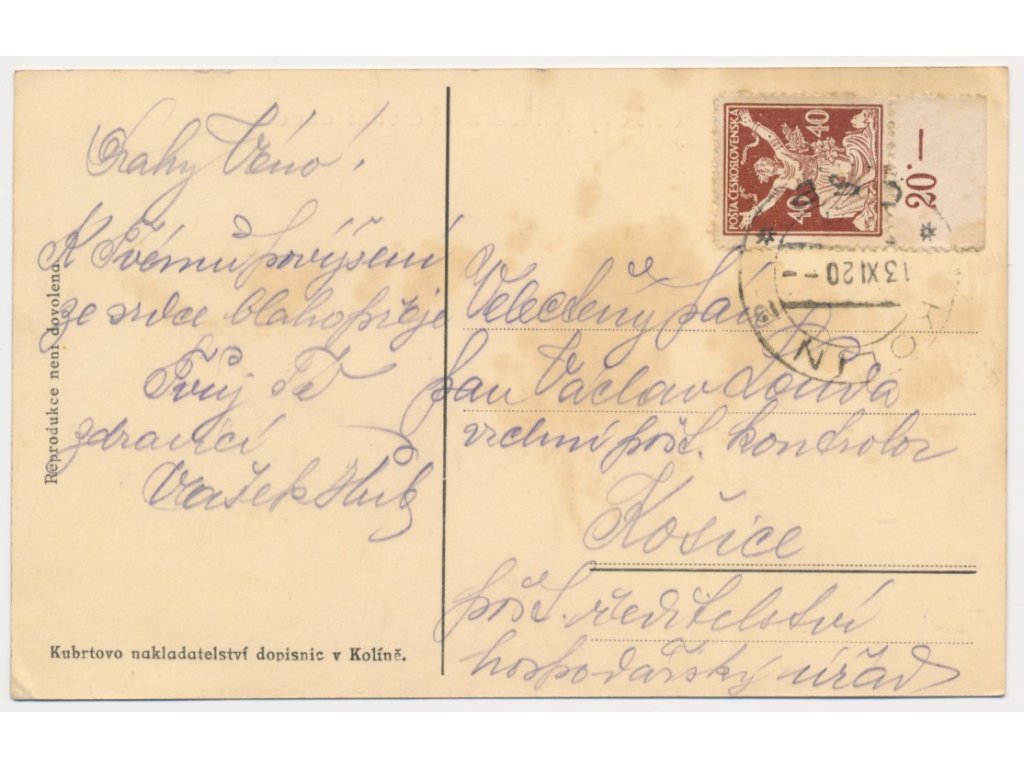 Drahý Véno!
K Tvému povýšení
ze srdce blahopřeje
Tvůj Tě
zdravící
Vašek
Reprodukce není dovolena.
Kubrtovo nakladatelství dopisnic v Kolíně.
POŠTA ČESKOSLOVENSKÁ
40 40
20·—
KOLÍN
13 XI 20
Velectěný pán
pan Václav Louda
vrchní pošt. kontrolor
Košice
pošt. ředitelství
hospodářský úřad